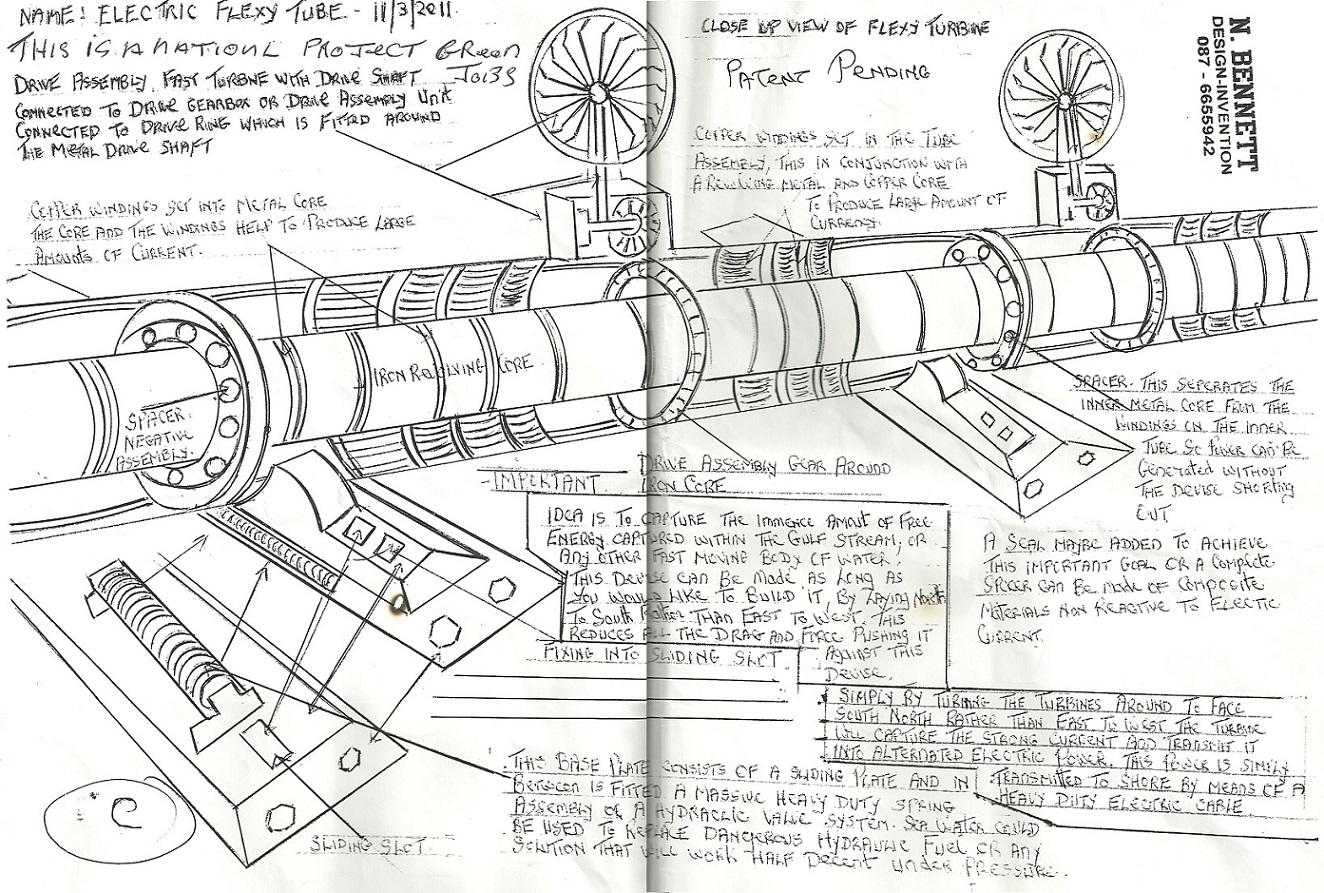 NAME: ELECTRIC FLEXY TUBE - 11/3/2011.
THIS IS A NATIONL PROJECT GReen
JoB3S
DRIVE ASSEMBLY, FAST TURBINE WITH DRIVE SHAFT
CONNECTED TO DRIVE GEARBOX OR DRIVE ASSEMBLY UNIT
CONNECTED TO DRIVE RING WHICH IS FITTED AROUND
THE METAL DRIVE SHAFT
COPPER WINDINGS SET INTO METAL CORE
THE CORE AND THE WINDINGS HELP TO PRODUCE LARGE
AMOUNTS OF CURRENT.
CLOSE UP VIEW OF FLEXY TURBINE
PATENT PENDING
N. BENNETT
DESIGN-INVENTION
087 - 6655942
COPPER WINDINGS SET IN THE TUBE
ASSEMBLY, THIS IN CONJUNCTION WITH
A REVOLVING METAL AND COPPER CORE
TO PRODUCE LARGE AMOUNT OF
CURRENT.
IRON REVOLVING CORE
SPACER
NEGATIVE
ASSEMBLY.
SPACER. THIS SEPERATES THE
INNER METAL CORE FROM THE
WINDINGS ON THE INNER
TUBE SO POWER CAN BE
Generated WITHOUT
THE DEVISE SHORTING
OUT
DRIVE ASSEMBLY GEAR AROUND
IRON CORE
-IMPORTANT
IDEA IS TO CAPTURE THE IMMENCE AMOUT OF FREE
ENERGY CAPTURED WITHIN THE GULF STREAM, OR
ANY OTHER FAST MOVING BODY OF WATER.
THIS DEVISE CAN BE MADE AS LONG AS
YOU WOULD LIKE TO BUILD IT, BY LAYING NORTH
To SOUTH Rather THAN EAST TO WEST. THIS
REDUCES ALL THE DRAG AND FORCE PUSHING IT
AGAINST THIS
DEVISE.
A SEAL MAYBE ADDED TO ACHIEVE
THIS IMPORTANT GOAL OR A COMPLETE
SPACER CAN BE MADE OF COMPOSITE
MATERIALS NON REACTIVE TO ELECTIC
CURRENT.
FIXING INTO SLIDING SLOT
SIMPLY BY TURNING THE TURBINES AROUND TO FACE
SOUTH NORTH RATHER THAN EAST TO WEST THE TURBINE
WILL CAPTURE THE STRONG CURRENT AND TRANSMIT IT
INTO ALTERNATED ELECTRIC POWER. THIS POWER IS SIMPLY
TRANSMITTED TO SHORE BY MEANS OF A
HEAVY DUTY ELECTRIC CABLE
THIS BASE PLATE CONSISTS OF A SLIDING PLATE AND IN
BETWEEN IS FITTED A MASSIVE HEAVY DUTY SPRING
ASSEMBLY OR A HYDRAULIC VALVE SYSTEM. SEA WATER COULD
BE USED TO REPLACE DANGEROUS HYDRAULIC FUEL OR ANY
SOLUTION THAT WILL WORK HALF DECENT UNDER PRESSURE.
SLIDING SLOT.
C